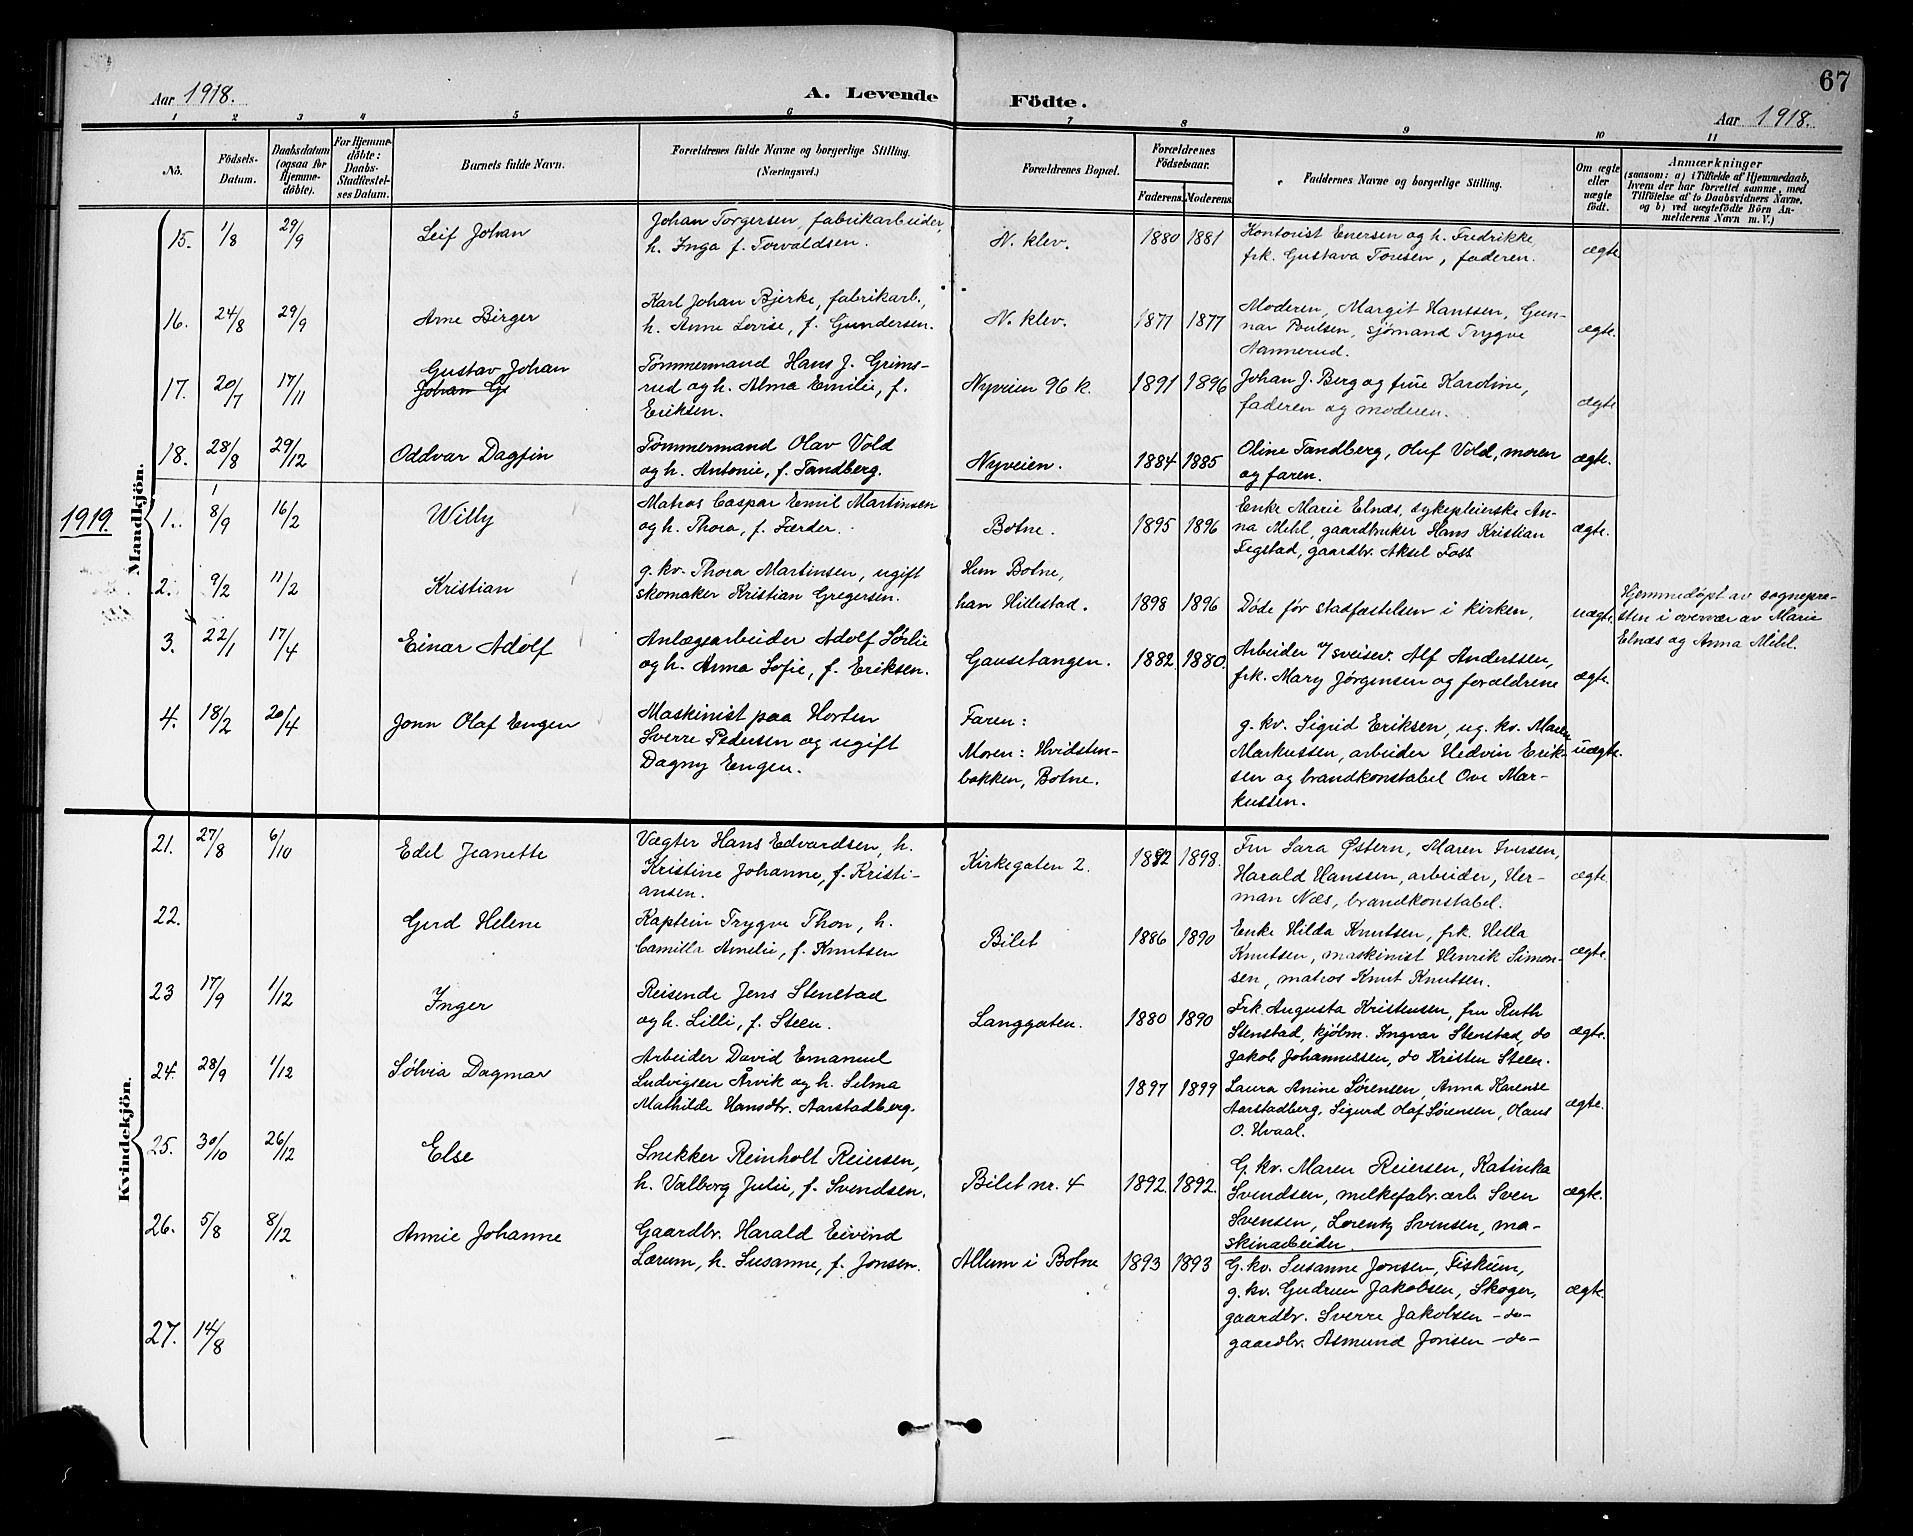 67
Aar 1918. A. Levende Födte. Aar 1918.
1 2 3 4 5 6 7 8 9 10 11
No.
Födsels-Datum.
Daabsdatum (ogsaa for Hjemme-döbte).
For Hjemme-döbte: Daabs-Stadfæstel-ses Datum.
Barnets fulde Navn.
Forældrenes fulde Navne og borgerlige Stilling. (Næringsvei.)
Forældrenes Bopæl.
Forældrenes Födselsaar.
Faderens. Moderens.
Faddernes Navne og borgerlige Stilling.
Om ægte eller uægte födt.
Anmærkninger
(saasom: a) i Tilfælde af Hjemmedaab,
hvem der har forrettet samme, med
Tilföielse af to Daabsvidners Navne,
og b) ved uægtefödte Börn An-
melderens Navn m. V.)
Mandkjön.
15. 1/8 29/9 Leif Johan
Johan Torgersen, fabrikarbeider,
h. Inga f. Torvaldsen.
N. klev. 1880 1881
Kontorist Enersen og h. Fredrikke
frk. Gustava Toresen, faderen.
ægte
16. 24/8 29/9 Arne Birger
Karl Johan Bjerke, fabrikarb.,
h. Anne Lovise, f. Gundersen.
N. klev. 1877 1877
Moderen, Margit Hanssen, Gun-
nar Poulsen, sjømand Trygve
Aannerud.
ægte.
17. 20/7 17/11 Gustav Johan
Johan G
Tømmermand Hans J. Grims-
rud og h. Alma Emilie, f.
Eriksen.
Nyveien 96 k. 1891 1896
Johan J. Berg og frue Karoline,
faderen og moderen.
ægte
18. 28/8 29/12 Oddvar Dagfin
Tømmermand Olav Vold
og h. Antonie, f. Tandberg.
Nyveien. 1884 1885
Oline Tandberg, Oluf Vold, moren
og faren.
ægte.
1919.
1. 8/9 16/2 Willy
Matros Caspar Emil Martinsen
og h. Thora, f. Færder.
Botne. 1895 1896
Enke Marie Elnæs, sykepleierske An-
na Mehl, gaardbruker Hans Kristian
Tegstad, gaardbr. Aksel Foss
ægte.
2. 9/2 11/2 Kristian
g. kv. Thora Martinsen, ugift
skomaker Kristian Gregersen.
Hun Botne,
han Hillestad. 1898 1896
Døde før stadfæstelsen i kirken,
uægte.
Hjemmedøpt av sognepre-
sten i overvær av Marie
Elnæs og Anna Mehl.
3. 22/1 17/4 Einar Adolf
Anlægsarbeider Adolf Sørlie
og h. Anna Sofie, f. Eriksen.
Gausetangen. 1882 1880.
Arbeider v/ sveisev. Alf Anderssen,
frk. Mary Jørgensen og forældrene
ægte.
4. 18/2 20/4 Jonn Olaf Engen
Maskinist paa Horten
Sverre Pedersen og ugift
Dagny Engen.
Faren:
Moren: Hvidsten-
bakken, Botne.
g. kv. Sigrid Eriksen, ug. kv. Maren
Markussen, arbeider Hedvin Erik-
sen og brandkonstabel Ove Mar-
kussen.
uægte.
Kvindekjön.
21. 27/8 6/10 Edel Jeanette
Vægter Hans Edvardsen, h.
Kristine Johanne, f. Kristi-
ansen.
Kirkegaten 2. 1892 1898.
Fru Sara Østern, Maren Iversen,
Harald Hanssen, arbeider, Her-
man Næs, brandkonstabel.
ægte.
22. Gerd Helene
Kaptein Trygve Thon, h.
Camilla Amelie, f. Knutsen
Bilet 1886 1890
Enke Hilda Knutsen, frk. Hella
Knutsen, maskinist Henrik Simon-
sen, matros Knut Knutsen.
ægte.
23 17/9 1/12 Inger
Reisende Jens Stenstad
og h. Lilli, f. Steen.
Langgaten. 1880 1890
Frk. Augusta Kristensen, fru Ruth
Stenstad, kjøbm. Ingvar Stenstad, do
Jakob Johannessen, do Kristen Steen.
ægte.
24. 28/9 1/12 Sølvia Dagmar
Arbeider David Emanuel
Ludvigsen Årvik og h. Selma
Mathilde Hansdtr. Aarstadberg.
1897 1899
Laura Anine Sørensen, Anna Karense
Aarstadberg, Sigurd Olaf Sørensen, Hans
O. Hvaal.
ægte.
25. 30/10 26/12 Else
Snekker Reinholt Reiersen,
h. Valborg Julie, f. Svendsen.
Bilet nr. 4 1892. 1892.
G. kv. Maren Reiersen, Katinka
Svendsen, melkefabr. arb. Sven
Svensen, Lorentz Svensen, ma-
skinarbeider.
ægte.
26. 5/8 8/12 Annie Johanne
Gaardbr. Harald Eivind
Lærum, h. Susanne, f. Jonsen.
Allum i Botne 1893 1893
G. kv. Susanne Jonsen, Fiskum,
g. kv. Gudrun Jakobsen, Skoger,
gaardbr. Sverre Jakobsen -do-
gaardbr. Asmund Jonsen -do-
ægte.
27. 14/8